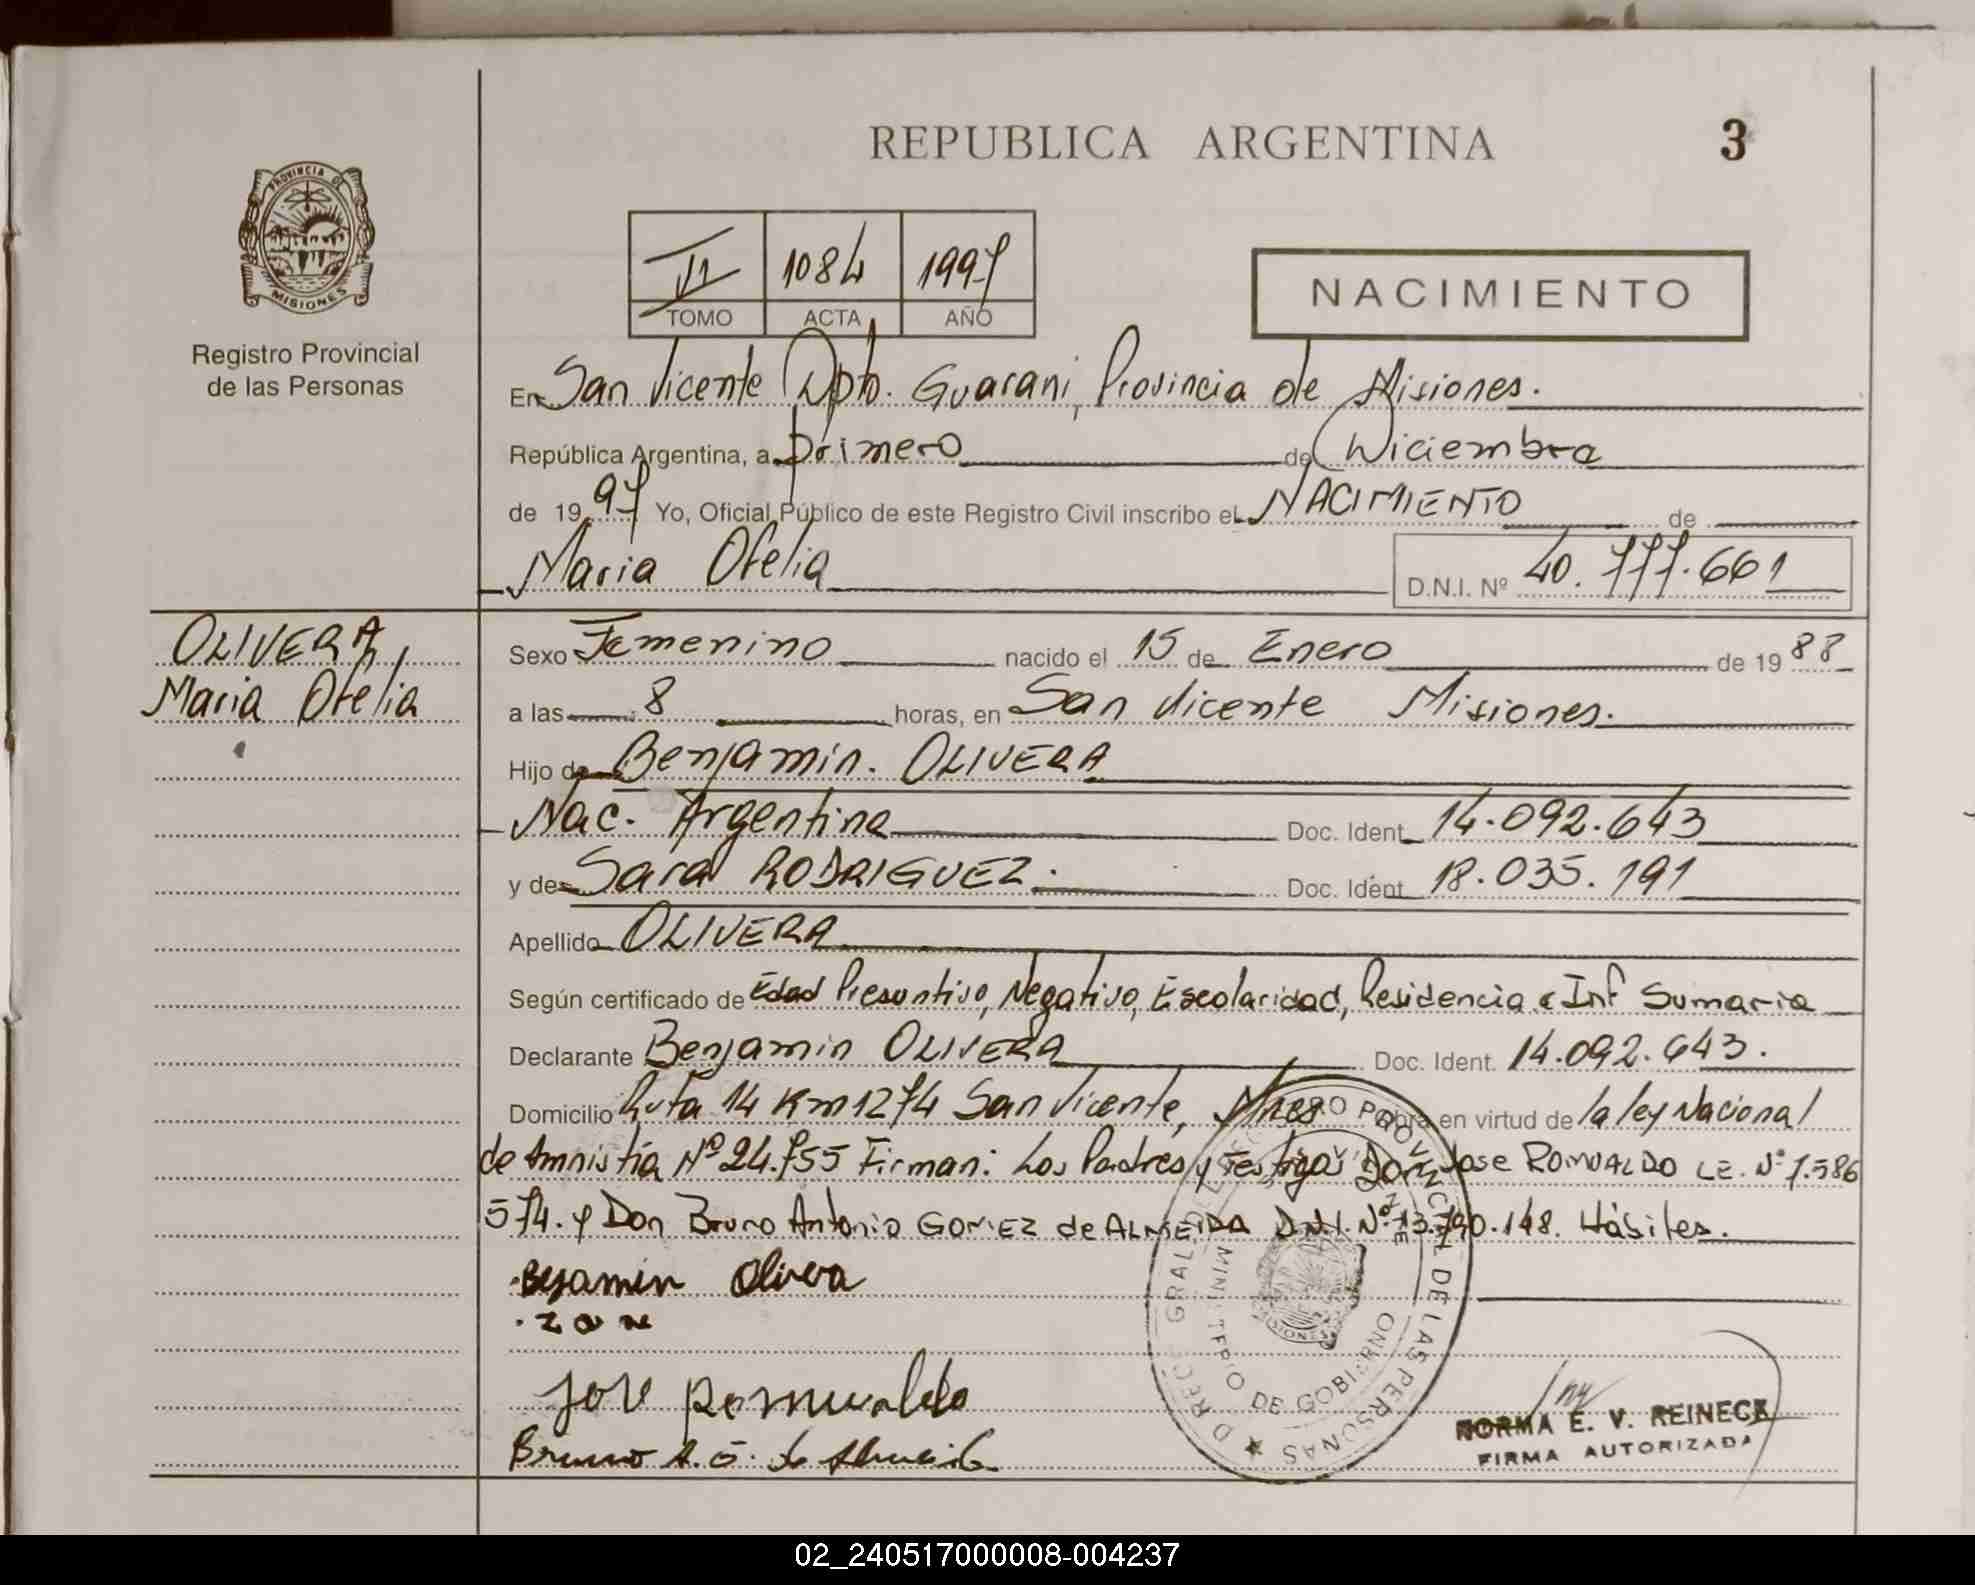 REPUBLICA ARGENTINA
3
PROVINCIA DE
MISIONES
Registro Provincial
de las Personas
VI 1084 1997
TOMO ACTA AÑO
NACIMIENTO
En San Vicente Dpto. Guarani, Provincia de Misiones.
República Argentina, a primero de Diciembre
de 1997 Yo, Oficial Público de este Registro Civil inscribo el NACIMIENTO de
Maria Ofelia D.N.I. Nº 40.777.661
OLIVERA,
Maria Ofelia
Sexo Femenino nacido el 15 de Enero de 1988
a las 8 horas, en San Vicente Misiones.
Hijo de Benjamin. OLIVERA
Nac. Argentina Doc. Ident. 14.092.643
y de Sara RODRIGUEZ. Doc. Ident. 18.035.191
Apellido OLIVERA
Según certificado de Edad Presuntivo, Negativo, Escolaridad, Residencia e Inf Sumaria
Declarante Benjamin OLIVERA Doc. Ident. 14.092.643.
Domicilio Ruta 14 Km 1274 San Vicente, Mnes Obra en virtud de la ley Nacional
de Amnistia Nº 24.755 Firman: Los Padres y Testigos Don Jose ROMUALDO LE. Nº 7.586
574. y Don Bruno Antonio GOMEZ de ALMEIDA D.N.I. Nº 13.790.148. Hábiles.
Bejamin Olivera
José Romualdo
Bruno A. G. de Almeida
DIRECC GRAL DEL REGISTRO PROVINCIAL DE LAS PERSONAS
MINISTERIO DE GOBIERNO
MISIONES
NORMA E. V. REINECK
FIRMA AUTORIZADA
02_240517000008-004237